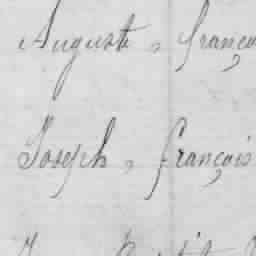 Auguste, françois
Joseph, françois